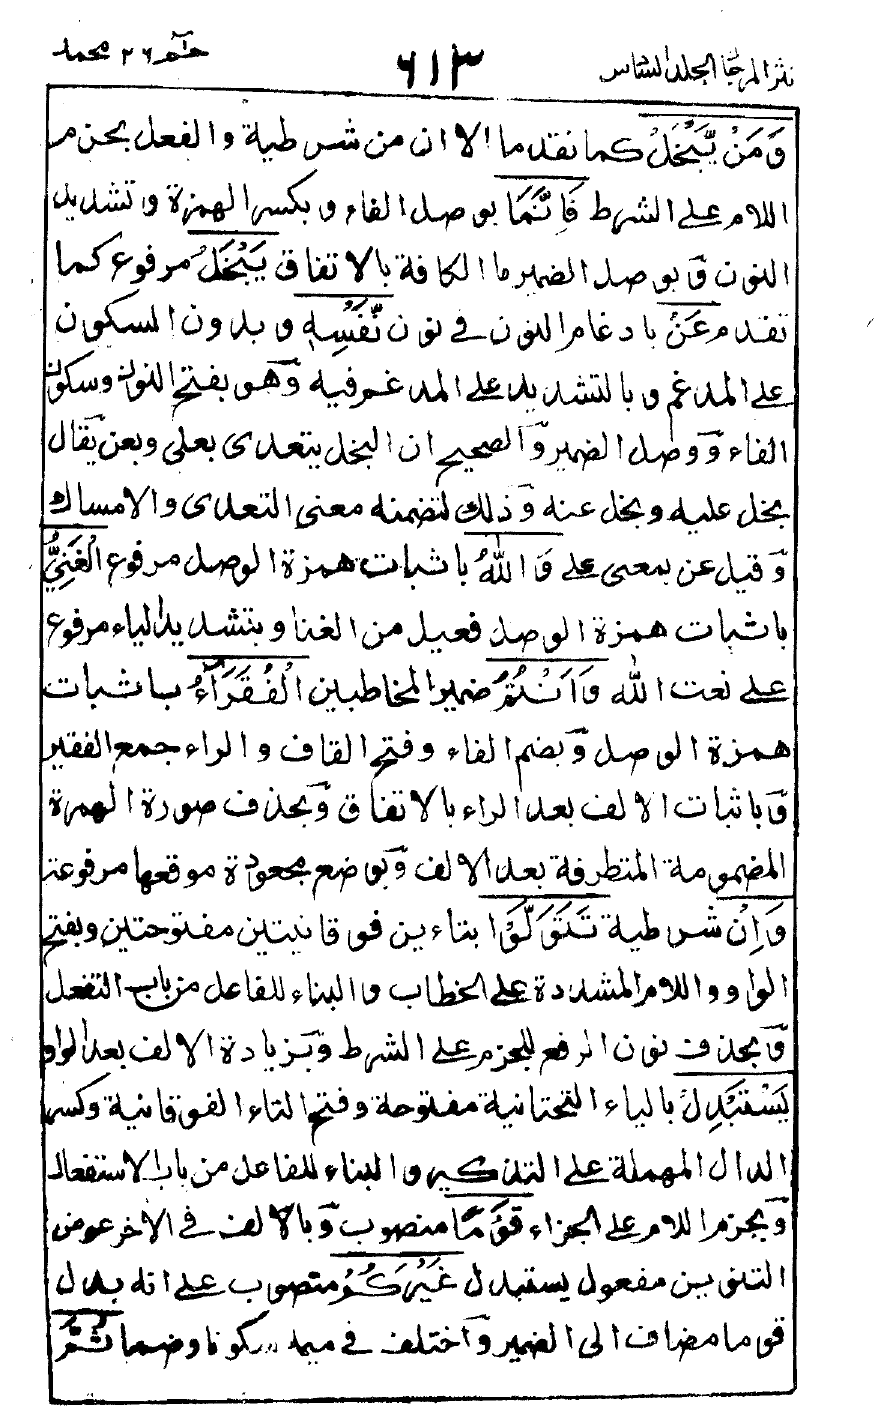 نثر المرجان المجلد السادس
٦١٣
حٰم ٢٦ محمد
وَمَنْ يَّبْخَلْ كما تقدم ما الا ان من شرطية والفعل بجزم
اللام على الشرط فَاِنَّمَا بوصل الفاء و بكسر الهمزة و تشديد
النون وبوصل الضمير ما الكافة بالاتفاق يَبْخَلُ مرفوع كما
تقدم عَنْ بادغام النون في نون نَّفْسِهٖ و بدون السكون
على المدغم و بالتشديد على المدغم فيه وهو بفتح النون وسكون
الفاء ووصل الضمير والصحيح ان البخل يتعدى بعلى وبعن يقال
بخل عليه وبخل عنه وذلك لتضمنه معنى التعدى والامساك
وقيل عن بمعنى على وَاللّٰهُ باثبات همزة الوصل مرفوع الْغَنِيُّ
باثبات همزة الوصل فعيل من الغنا و بتشديد الياء مرفوع
على نعت الله وَاَنْتُمُ ضمير المخاطبين الْفُقَرَآءُ باثبات
همزة الوصل وبضم الفاء وفتح القاف والراء جمع الفقير
وباثبات الالف بعد الراء بالاتفاق وبحذف صورة الهمزة
المضمومة المتطرفة بعد الالف وبوضع مجعودة موقعها مرفوعة
وَاِنْ شرطية تَتَوَلَّوْا بتاءين فوقانيتين مفتوحتين وبفتح
الواو واللام المشددة على الخطاب والبناء للفاعل من باب التفعل
وبحذف نون الرفع للجزم على الشرط وبزيادة الالف بعد الواو
يَسْتَبْدِلْ بالياء التحتانية مفتوحة وفتح التاء الفوقانية وكسر
الدال المهملة على التذكير والبناء للفاعل من باب الاستفعال
وبجزم اللام على الجزاء قَوْمًا منصوب وبالالف في الآخر عوض
التنوين مفعول يستبدل غَيْرَكُمْ منصوب على انه بدل
قوما مضاف الى الضمير واختلف في ميمه سكونا وضما ثُمَّ